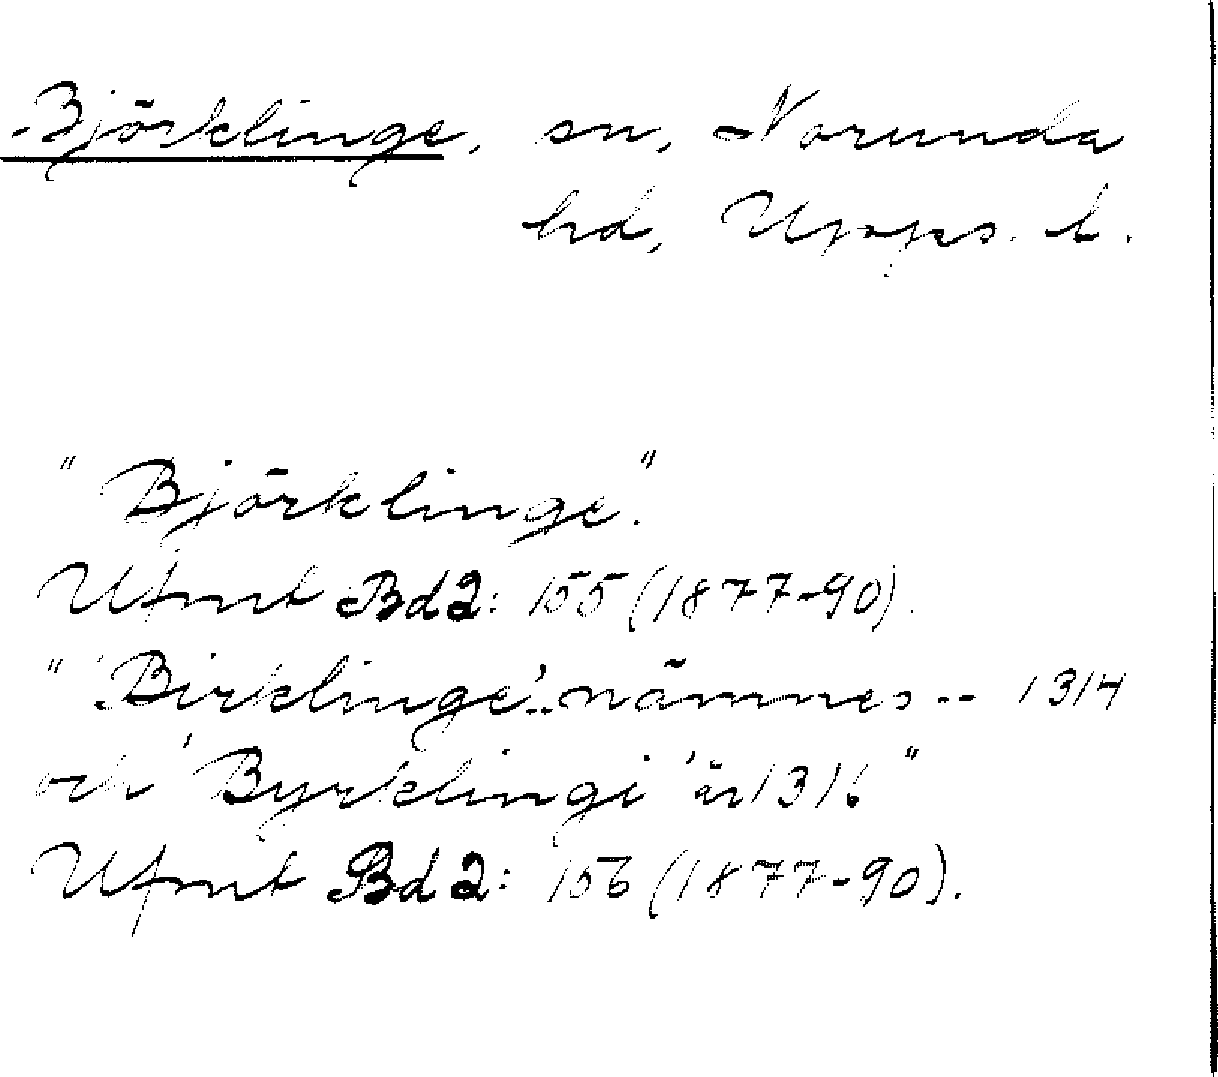 Björklinge, sn, Norunda
hd, Upps. l.
"Björklinge."
Ufmt Bd 2: 155 (1877-90).
"'Birklinge'.. nämnes -- 1314
och 'Byrklingi' år 1316"
Ufmt Bd 2: 156 (1877-90).